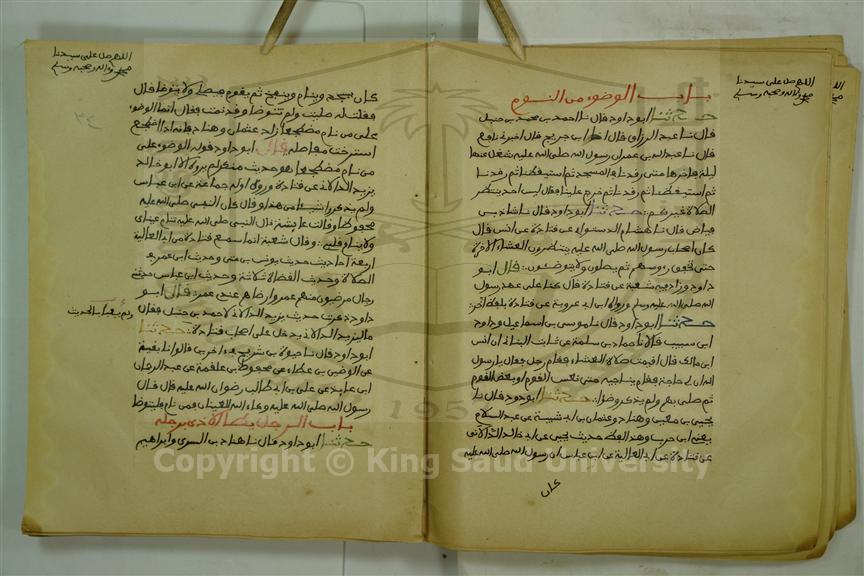 اللهم صل على سيدنا
محمد وآله وصحبه وسلم
باب الوضوء من النوم
حدثنا ابو داود قال نا احمد بن محمد بن حنبل
قال نا عبد الرزاق قال انا ابن جريج قال اخبرني نافع
قال نا عبد الله بن عمر ان رسول الله صلى الله عليه شغل عنها
ليلة فاخرها حتى رقدنا في المسجد ثم استيقظنا ثم رقدنا
ثم استيقظنا ثم رقدنا ثم خرج علينا فقال ليس احد ينتظر
الصلاة غيركم حدثنا ابو داود قال نا شاذ بن
فياض قال نا هشام الدستوائي عن قتادة عن انس قال
كان اصحاب رسول الله صلى الله عليه ينتظرون العشاء الآخرة
حتى تخفق رءوسهم ثم يصلون ولا يتوضئون قال ابو
داود وزاد فيه شعبة عن قتادة قال كنا على عهد رسول
الله صلى الله عليه وسلم ورواه ابن ابي عروبة عن قتادة بلفظ آخر
حدثنا ابو داود قال نا موسى بن اسماعيل وداود
ابن شبيب قالا نا حماد بن سلمة عن ثابت البناني ان انس
ابن مالك قال اقيمت صلاة العشاء فقام رجل فقال يا رسول
الله ان لي حاجة فقام يناجيه حتى نعس القوم او بعض القوم
ثم صلى بهم ولم يذكر وضوءا حدثنا ابو داود قال نا
يحيى بن معين وهناد وعثمان بن ابي شيبة عن عبد السلام
يعني ابن حرب وهذا لفظ حديث يحيى عن ابي خالد الدالاني
عن قتادة عن ابي العالية عن ابن عباس ان رسول الله صلى الله عليه
كان
اللهم صل على سيدنا
محمد وآله وصحبه وسلم
كان يسجد وينام وينفخ ثم يقوم فيصلي ولا يتوضأ قال
فقلت له صليت ولم تتوضأ وقد نمت فقال انما الوضوء
على من نام مضطجعا زاد عثمان وهناد فانه اذا اضطجع
استرخت مفاصله قال ابو داود قوله الوضوء على
من نام مضطجعا هو حديث منكر لم يروه الا ابو خالد
يزيد الدالاني عن قتادة وروى اوله جماعة عن ابن عباس
ولم يذكروا شيئا من هذا وقال كان النبي صلى الله عليه
محفوظا وقالت عايشة قال النبي صلى الله عليه تنام عيناي
ولا ينام قلبي وقال شعبة انما سمع قتادة من ابي العالية
اربعة احاديث حديث يونس بن متى وحديث ابن عمر في
الصلاة وحديث القضاة ثلاثة وحديث ابن عباس حدثني
رجال مرضيون منهم عمر وارضاهم عندي عمر قال ابو
داود ذكرت حديث يزيد الدالاني لاحمد بن حنبل فقال
ما ليزيد الدالاني يدخل على اصحاب قتادة حدثنا
ولم يعبأ بالحديث
ابو داود قال نا حيوة بن شريح في آخرين قالوا نا بقية
عن الوضين بن عطاء عن محفوظ بن علقمة عن عبد الرحمان
ابن عايذ عن علي بن ابي طالب رضوان الله عليه قال قال
رسول الله صلى الله عليه وكاء السه العينان فمن نام فليتوضأ
باب الرجل يطأ الاذى برجله
حدثنا ابو داود قال نا هناد بن السري وابراهيم
Copyright © King Saud University